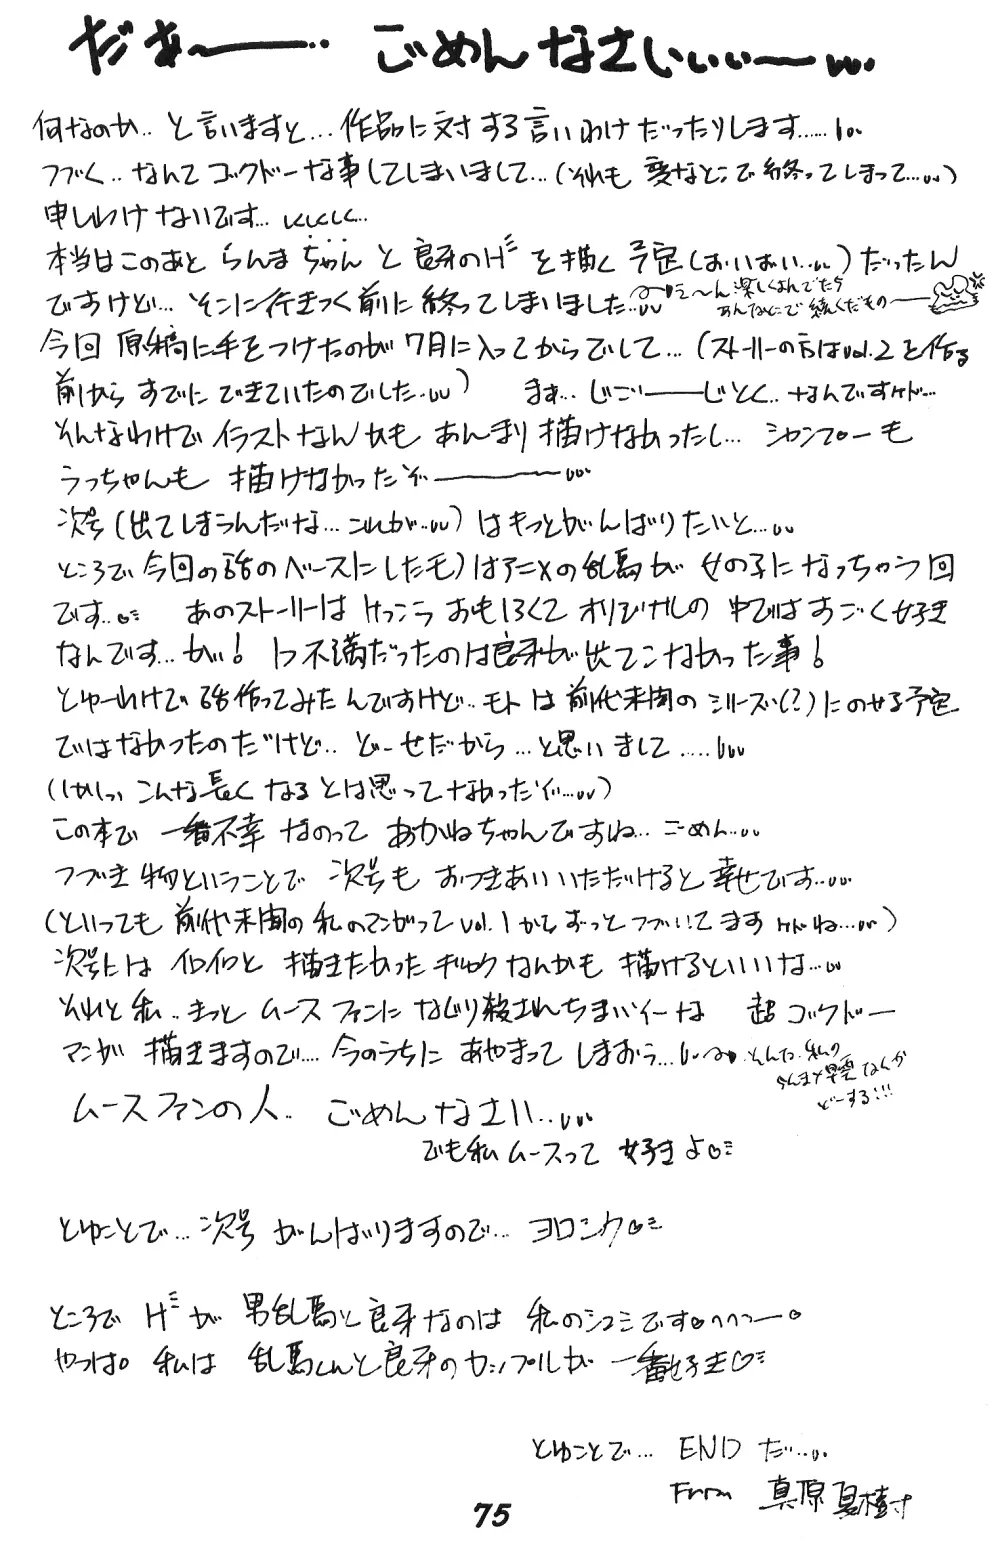 だぁ〜──‥ ごめんなさいぃぃ─…
何なのか‥と言いますと…作品に対する言いわけだったりします……
つづく‥なんてゴックドーな事してしまいまして…(それも変なとこで終ってしまって…)
申しわけないです…
本当はこのあと らんまちゃんと良牙のHを描く予定(おいおい…)だったん
ですけど…そこに行きつく前に終ってしまいました…
え〜ん楽しくよんでたら
あんなとこで続くだもの──
今回 原稿に手をつけたのが7月に入ってからでして…(ストーリーの方はvol.2を作る
前からすでにできていたのでした…) まぁ…じごー──じとく‥なんですケド…
そんなわけでイラストなんかもあんまり描けなかったし… シャンプーも
うっちゃんも 描けなかったぞ────…
次号(出てしまうんだな…これが…)はもっとがんばりたいと…
ところで今回の話のベースにしたモノはアニメの乱馬が女の子になっちゃう回
です‥ あのストーリーはけっこうおもしろくてオリジナルの中ではすごく好き
なんです…が! 1つ不満だったのは良牙が出てこなかった事!
とゆーわけで話作ってみたんですけど‥モトは前代未聞のシリーズ(?)にのせる予定
ではなかったのだけど‥どーせだから…と思いまして……
(しかしっ こんな長くなるとは思ってなかったぞ…)
この本で一番不幸なのって あかねちゃんですね… ごめん…
つづき物ということで 次号もおつきあいいただけると幸せです…
(といっても前代未聞の私のマンガってvol.1からずっとつづいてますケドね…)
次号には イロイロと描きたかったギャグなんかも描けるといいな…
それと私‥きっと ムースファンになじり殺されちまいそーな 超ゴックドー
マンガ 描きますので…今のうちに あやまってしまおう…
そんな 私の
らんま×ムースなんか
どーする!!!
ムースファンの人‥ ごめんなさい…
でも私ムースって好きよ♡
とゆことで… 次号 がんばりますので… ヨロシク♡
ところで Hが 男乱馬と良牙なのは 私のシュミです
やっぱ 私は 乱馬くんと良牙のカップルが 一番好き♡
とゆことで… END だ…
From 真原夏樹
75